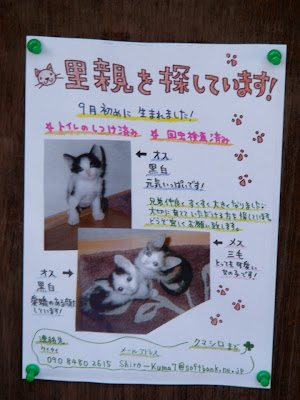 里親を探しています!
9月初めに生まれました!
*トイレのしつけ済み *回虫検査済み
← オス
黒白
元気いっぱいです!
兄弟仲良くすくすく大きくなりました。
大切に育てていただける方を探しています。
どうぞ宜しくお願い致します。
← メス
三毛
とっても可愛い
女の子です!
オス →
黒白
愛嬌のある顔を
しています!
連絡先
ケイタイ
090 8480 2615
メールアドレス
クマシロまで